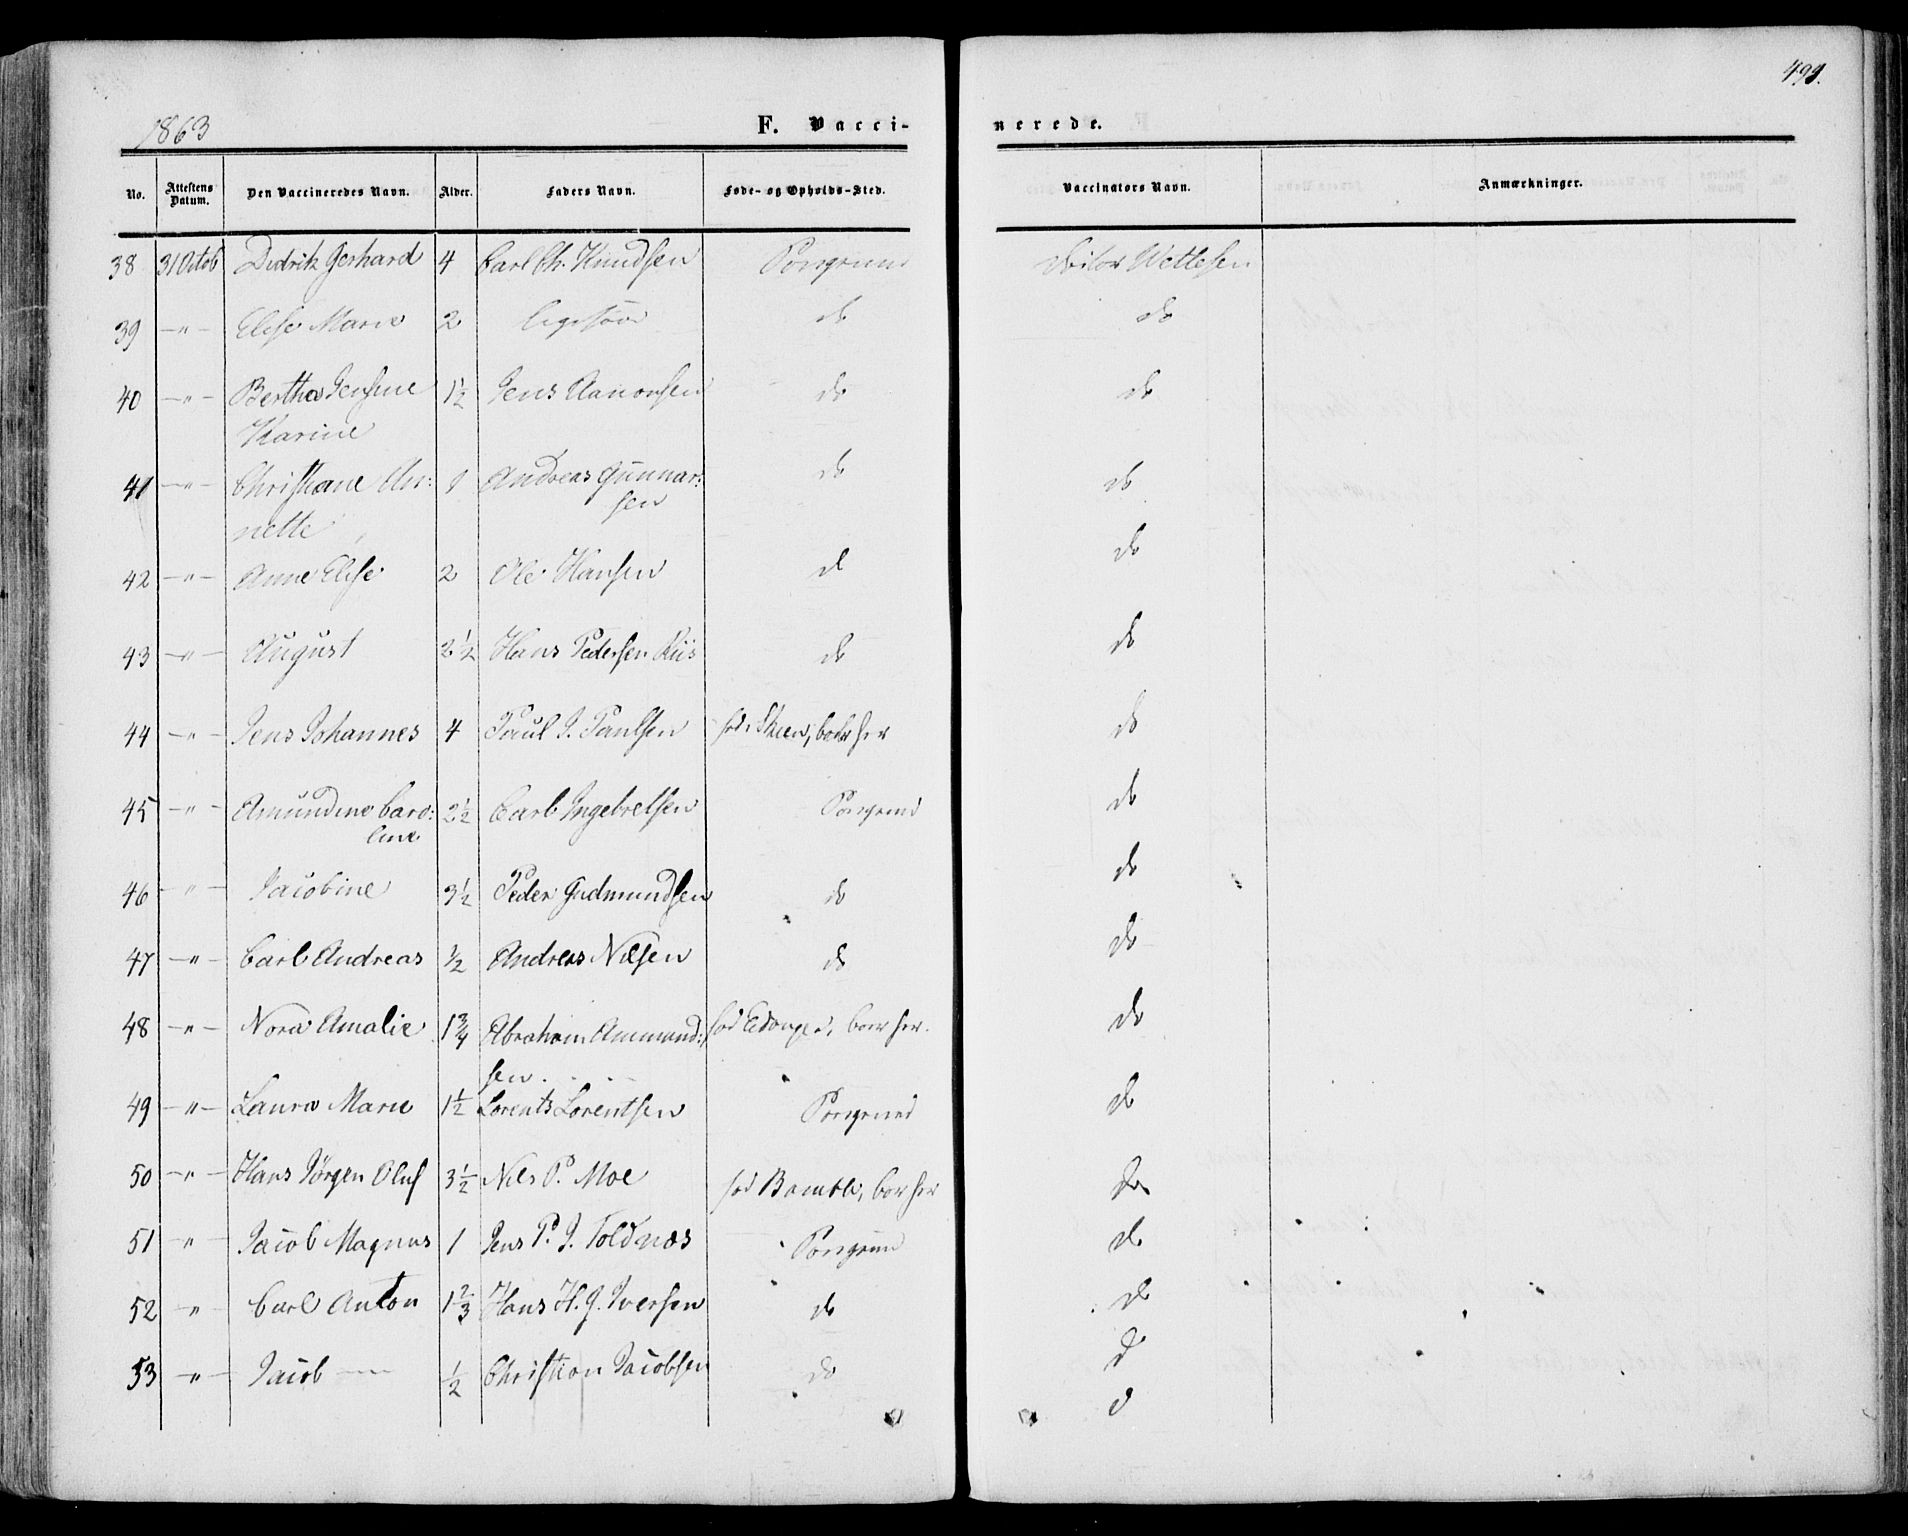 499.
1863 F. Vacci- nerede.
No. Attestens Datum. Den Vaccineredes Navn. Alder. Faders Navn. Føde- og Opholds-Sted. Vaccinators Navn. Anmærkninger.
38 31 Octob Didrik Gerhard 4 Carl Chr. Knudsen Porsgrund Wettesen
39 -"- Elise Marie 2 ligesaa do do
40 -"- Berthe Jensine 1½ Jens Aanonsen do do
Karine
41 -"- Christiane An: 1 Andreas Gunnar: do do
nette sen
42 -"- Anne Elise 2 Ole Hansen do do
43 -"- August 2½ Hans Pedersen Riis do do
44 -"- Jens Johannes 4 Paul J. Paulsen fød i Skeen, boer her do
45 -"- Amundine Caro: 2½ Carl Ingebretsen Porsgrund do
line
46 -"- Jacobine 3½ Peder Gudmundsen do do
47 -"- Carl Andreas ½ Andreas Nilsen do do
48 -"- Nora Amalie 1¾ Abraham Ammund: fød Eidanger, boer her. do
sen.
49 -"- Laura Marie 1½ Lorents Lorentsen Porsgrund do
50 -"- Hans Jørgen Oluf 3½ Nils P. Moe fød Bamble, boer her do
51 -"- Jacob Magnus 1 Jens P. J. Toldnæs Porsgrund do
52 -"- Carl Anton 1⅔ Hans H. G. Iversen do do
53 -"- Jacob ½ Christian Jacobsen do do
d